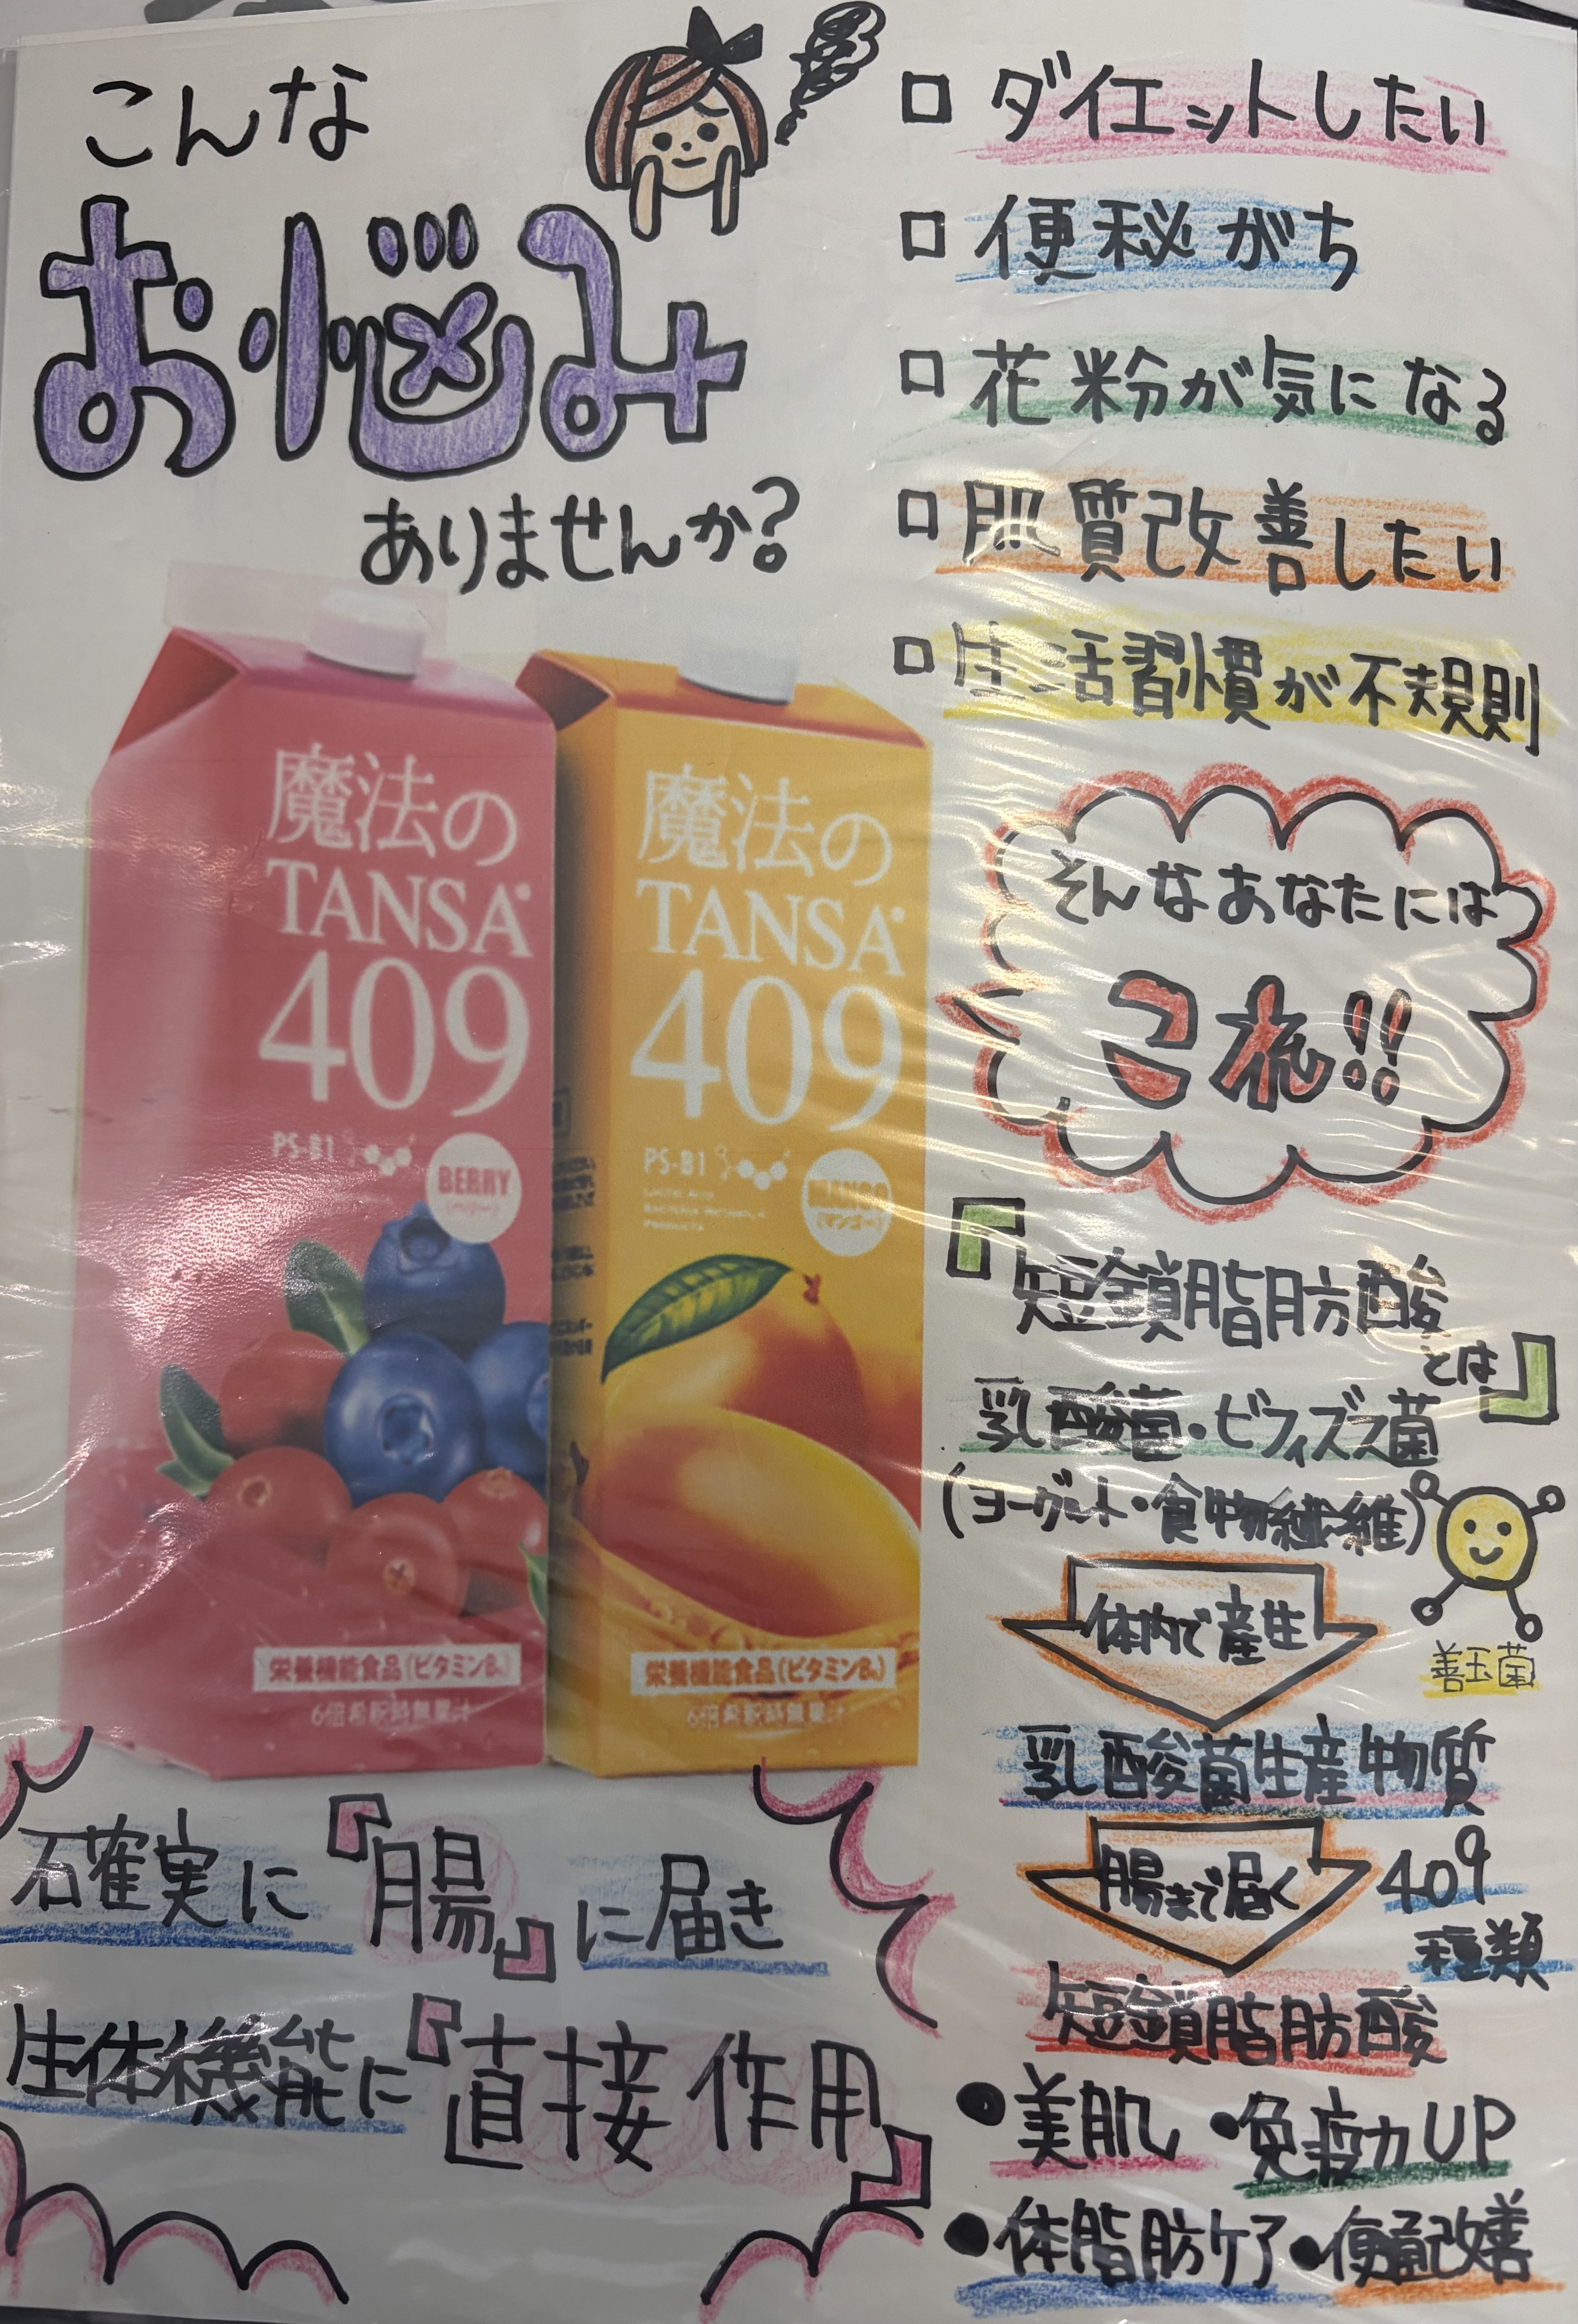 こんな
お悩み
ありませんか?
□ ダイエットしたい
□ 便秘がち
□ 花粉が気になる
□ 肌質改善したい
□ 生活習慣が不規則
そんなあなたには
これ!!
魔法の
TANSA
409
PS-B1
BERRY
魔法の
TANSA
409
PS-B1
LACTIC ACID
BACTERIA METABOLIC
PRODUCTS
MANGO
(マンゴー)
栄養機能食品(ビタミンB₆)
6倍希釈時無果汁
栄養機能食品(ビタミンB₆)
6倍希釈時無果汁
『短鎖脂肪酸
とは』
乳酸菌・ビフィズス菌
(ヨーグルト・食物繊維)
善玉菌
体内で産生
乳酸菌生産物質
腸まで届く
409
種類
短鎖脂肪酸
●美肌 ●免疫力UP
●体脂肪ケア ●便通改善
確実に『腸』に届き
生体機能に『直接作用』